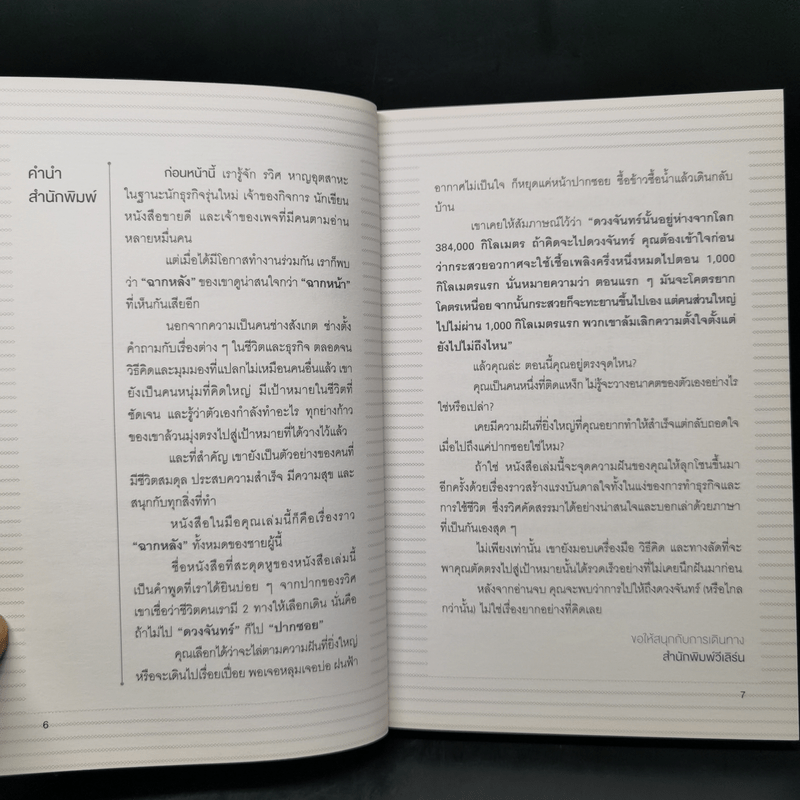 คำนำ
สำนักพิมพ์
ก่อนหน้านี้ เรารู้จัก รวิศ หาญอุตสาหะ
ในฐานะนักธุรกิจรุ่นใหม่ เจ้าของกิจการ นักเขียน
หนังสือขายดี และเจ้าของเพจที่มีคนตามอ่าน
หลายหมื่นคน
แต่เมื่อได้มีโอกาสทำงานร่วมกัน เราก็พบ
ว่า "ฉากหลัง" ของเขาดูน่าสนใจกว่า "ฉากหน้า"
ที่เห็นกันเสียอีก
นอกจากความเป็นคนช่างสังเกต ช่างตั้ง
คำถามกับเรื่องต่าง ๆ ในชีวิตและธุรกิจ ตลอดจน
วิธีคิดและมุมมองที่แปลกไม่เหมือนคนอื่นแล้ว เขา
ยังเป็นคนหนุ่มที่คิดใหญ่ มีเป้าหมายในชีวิตที่
ชัดเจน และรู้ว่าตัวเองกำลังทำอะไร ทุกย่างก้าว
ของเขาล้วนมุ่งตรงไปสู่เป้าหมายที่ได้วางไว้แล้ว
และที่สำคัญ เขายังเป็นตัวอย่างของคนที่
มีชีวิตสมดุล ประสบความสำเร็จ มีความสุข และ
สนุกกับทุกสิ่งที่ทำ
หนังสือในมือคุณเล่มนี้ก็คือเรื่องราว
"ฉากหลัง" ทั้งหมดของชายผู้นี้
ชื่อหนังสือที่สะดุดหูของหนังสือเล่มนี้
เป็นคำพูดที่เราได้ยินบ่อย ๆ จากปากของรวิศ
เขาเชื่อว่าชีวิตคนเรามี 2 ทางให้เลือกเดิน นั่นคือ
ถ้าไม่ไป "ดวงจันทร์" ก็ไป "ปากซอย"
คุณเลือกได้ว่าจะไล่ตามความฝันที่ยิ่งใหญ่
หรือจะเดินไปเรื่อยเปื่อย พอเจอหลุมเจอบ่อ ฝนฟ้า
6
อากาศไม่เป็นใจ ก็หยุดแค่หน้าปากซอย ซื้อข้าวซื้อน้ำแล้วเดินกลับ
บ้าน
เขาเคยให้สัมภาษณ์ไว้ว่า "ดวงจันทร์นั้นอยู่ห่างจากโลก
384,000 กิโลเมตร ถ้าคิดจะไปดวงจันทร์ คุณต้องเข้าใจก่อน
ว่ากระสวยอวกาศจะใช้เชื้อเพลิงครึ่งหนึ่งหมดไปตอน 1,000
กิโลเมตรแรก นั่นหมายความว่า ตอนแรก ๆ มันจะโคตรยาก
โคตรเหนื่อย จากนั้นกระสวยก็จะทะยานขึ้นไปเอง แต่คนส่วนใหญ่
ไปไม่ผ่าน 1,000 กิโลเมตรแรก พวกเขาล้มเลิกความตั้งใจตั้งแต่
ยังไปไม่ถึงไหน"
แล้วคุณล่ะ ตอนนี้คุณอยู่ตรงจุดไหน?
คุณเป็นคนหนึ่งที่ติดแหง็ก ไม่รู้จะวางอนาคตของตัวเองอย่างไร
ใช่หรือเปล่า?
เคยมีความฝันที่ยิ่งใหญ่ที่คุณอยากทำให้สำเร็จแต่กลับถอดใจ
เมื่อไปถึงแค่ปากซอยใช่ไหม?
ถ้าใช่ หนังสือเล่มนี้จะจุดความฝันของคุณให้ลุกโชนขึ้นมา
อีกครั้งด้วยเรื่องราวสร้างแรงบันดาลใจทั้งในแง่ของการทำธุรกิจและ
การใช้ชีวิต ซึ่งรวิศคัดสรรมาได้อย่างน่าสนใจและบอกเล่าด้วยภาษา
ที่เป็นกันเองสุด ๆ
ไม่เพียงเท่านั้น เขายังมอบเครื่องมือ วิธีคิด และทางลัดที่จะ
พาคุณตัดตรงไปสู่เป้าหมายนั้นได้รวดเร็วอย่างที่ไม่เคยนึกฝันมาก่อน
หลังจากอ่านจบ คุณจะพบว่าการไปให้ถึงดวงจันทร์ (หรือไกล
กว่านั้น) ไม่ใช่เรื่องยากอย่างที่คิดเลย
ขอให้สนุกกับการเดินทาง
สำนักพิมพ์วีเลิร์น
7